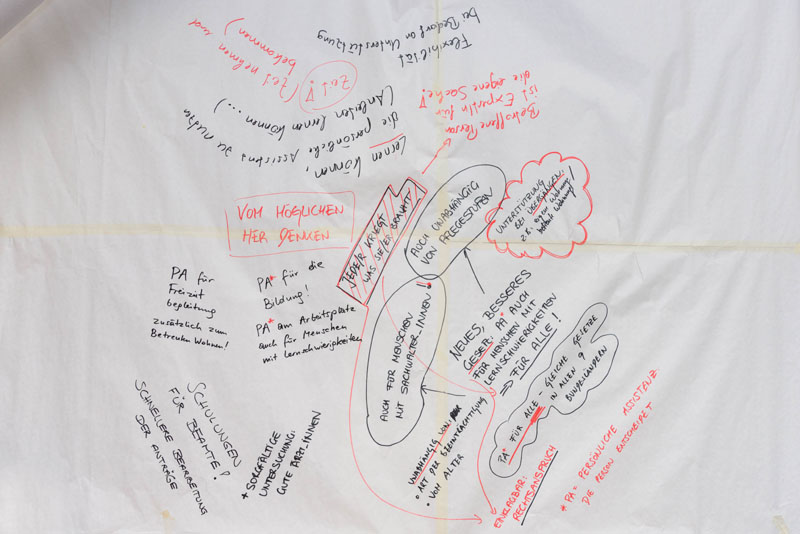 Flexibilität
bei Bedarf an Unterstützung
Zeit!
(Zeit nehmen und
bekommen)
Betroffene Person
ist Expertin für
die eigene Sache!
Lernen können,
die persönliche Assistenz zu nutzen
(Anleiten lernen können ...)
VOM MÖGLICHEN
HER DENKEN
JEDE/R KRIEGT
WAS SIE/ER BRAUCHT
AUCH UNABHÄNGIG
VON PFLEGESTUFEN
UNTERSTÜTZUNG
BEI ÜBERGÄNGEN:
z.B. eigene Wohnung/
betreute Wohnung!
PA für
Freizeit
begleitung
zusätzlich zum
Betreuten Wohnen!
PA* für die
Bildung!
PA* am Arbeitsplatz
auch für Menschen
mit Lernschwierigkeiten
AUCH FÜR MENSCHEN
MIT SACHWALTER.INNEN
NEUES, BESSERES
GESETZ: PA* AUCH
FÜR MENSCHEN MIT
LERNSCHWIERIGKEITEN
⇒ FÜR ALLE!
PA* FÜR ALLE - GLEICHE GESETZE
IN ALLEN 9
BUNDESLÄNDERN
SCHULUNGEN
FÜR BEAMTE!
SCHNELLERE BEARBEITUNG
DER ANTRÄGE
+ SORGFÄLTIGE
UNTERSUCHUNG:
GUTE ÄRZT.INNEN
UNABHÄNGIG VON
• ART DER BEEINTRÄCHTIGUNG
• VON ALTER
EINKLAGBAR:
RECHTSANSPRUCH
* PA = PERSÖNLICHE ASSISTENZ
DIE PERSON ENTSCHEIDET